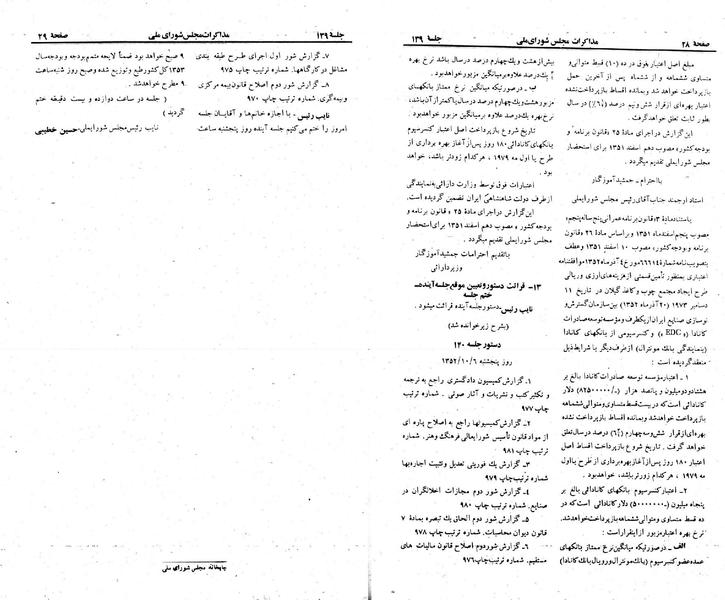 صفحهٔ ۲۸ مذاکرات مجلس شورای ملی جلسهٔ ۱۳۹
مبلغ اصل اعتبار بفوق در ده (۱۰) قسط متوالی و
متساوی ششماهه و از ششماه پس از آخرین حمل
بازپرداخت خواهد شد و بمانده اقساط بازپرداخت نشده
اعتبار بهره‌ای از قرار شش و نیم درصد در سال
بطور ثابت تعلق خواهد گرفت.
این گزارش در اجرای مادهٔ ۲۵ قانون برنامه و
بودجه کشور، مصوب دهم اسفند ۱۳۵۱ برای استحضار
مجلس شورایملی تقدیم میگردد.
با احترام ـ جمشید آموزگار
استاد ارجمند جناب آقای رئیس مجلس شورایملی
باستناد مادهٔ ۳ قانون برنامه عمرانی پنج ساله پنجم،
مصوب پنجم اسفندماه ۱۳۵۱ و بر اساس مادهٔ ۲۶ قانون
برنامه و بودجه کشور، مصوب ۱۰ اسفند ۱۳۵۱ و عطف
بتصویب‌نامه شمارهٔ ۶۶۶۱۴ مورخ ۴ آذرماه ۱۳۵۲ موافقتنامه
اعتباری بمنظور تأمین قسمتی از هزینه‌های ارزی و ریالی
طرح ایجاد مجتمع چوب و کاغذ گیلان در تاریخ ۱۱
دسامبر ۱۹۷۳ (۲۰ آذرماه ۱۳۵۲) بین سازمان گسترش و
نوسازی صنایع ایران از یکطرف و مؤسسه توسعه صادرات
کانادا « EDC » و کنسرسیومی از بانکهای کانادا
(بنمایندگی بانک مونترال) از طرف دیگر با شرایط ذیل
منعقد گردیده است :
۱ ـ اعتبار مؤسسه توسعه صادرات کانادا بالغ بر
هشتاد و دو میلیون و پانصد هزار (ـ/۸۲۵۰۰۰۰۰) دلار
کانادائی است که در بیست قسط متساوی و متوالی ششماهه
بازپرداخت خواهد شد و بمانده اقساط بازپرداخت نشده
بهره‌ای از قرار شش و سه چهارم درصد در سال تعلق
خواهد گرفت. تاریخ شروع بازپرداخت اقساط اصل
اعتبار ۱۸۰ روز پس از آغاز بهره برداری از طرح یا اول
مه ۱۹۷۹، هر کدام زودتر باشد، خواهد بود.
۲ ـ اعتبار کنسرسیوم بانکهای کانادائی بالغ بر
پنجاه میلیون (ـ/۵۰۰۰۰۰۰۰) دلار کانادائی است که در
ده قسط متساوی و متوالی ششماهه بازپرداخت خواهد شد.
نرخ بهره اعتبار مزبور از اینقرار است :
الف ـ در صورتیکه میانگین نرخ ممتاز بانکهای
عمده کانادائی (بانک مونترال و رویال بانک کانادا)
بیش از هشت و یک چهارم درصد در سال باشد نرخ بهره
یک درصد علاوه بر میانگین مزبور خواهد بود.
ب ـ در صورتیکه میانگین نرخ ممتاز بانکهای
مزبور هشت و یک چهارم درصد در سال یا کمتر از آن باشد،
نرخ بهره یک درصد علاوه بر میانگین مزبور خواهد بود
تاریخ شروع بازپرداخت اصل اعتبار کنسرسیوم
بانکهای کانادائی ۱۸۰ روز پس از آغاز بهره برداری از
طرح یا اول مه ۱۹۷۹، هر کدام زودتر باشد، خواهد
بود.
اعتبارات فوق توسط وزارت دارائی به نمایندگی
از طرف دولت شاهنشاهی ایران تضمین گردیده است.
این گزارش در اجرای مادهٔ ۲۵ قانون برنامه و
بودجه کشور، مصوب دهم اسفند ۱۳۵۱ برای استحضار
مجلس شورایملی تقدیم میگردد.
با تقدیم احترامات جمشید آموزگار
وزیر دارائی
۱۳ـ قرائت دستور و تعیین موقع جلسه آینده ـ
ختم جلسه
نایب رئیس ـ دستور جلسه آینده قرائت میشود.
(بشرح زیر خوانده شد)
دستور جلسه ۱۴۰
روز پنجشنبه ۱۳۵۲/۱۰/۶
۱ـ گزارش کمیسیون دادگستری راجع به ترجمه
و تکثیر کتب و نشریات و آثار صوتی. شماره ترتیب
چاپ ۹۷۷
۲ـ گزارش کمیسیونها راجع به اصلاح پاره ای
از مواد قانون تأسیس شورایعالی فرهنگ و هنر. شماره
ترتیب چاپ ۹۸۱
۳ـ گزارش یک فوریتی تعدیل و تثبیت اجاره‌بها
شماره ترتیب چاپ ۹۷۹
۴ـ گزارش شور دوم مجازات اخلالگران در
صنایع. شماره ترتیب چاپ ۹۸۰
۵ـ گزارش شور دوم الحاق یک تبصره بماده ۷
قانون دیوان محاسبات. شماره ترتیب چاپ ۹۷۸
۶ـ گزارش شور دوم اصلاح قانون مالیات های
مستقیم. شماره ترتیب چاپ ۹۷۶
جلسهٔ ۱۳۹ مذاکرات مجلس شورای ملی صفحهٔ ۲۹
۷ـ گزارش شور اول اجرای طرح طبقه بندی
مشاغل در کارگاهها. شماره ترتیب چاپ ۹۷۵
۸ـ گزارش شور دوم اصلاح قانون بیمه مرکزی
و بیمه‌گری. شماره ترتیب چاپ ۹۷۰
نایب رئیس ـ با اجازه خانم‌ها و آقایان جلسه
امروز را ختم می‌کنیم جلسه آینده روز پنجشنبه ساعت
۹ صبح خواهد بود ضمناً لایحه متمم بودجه و بودجه سال
۱۳۵۳ کل کشور طبع و توزیع شده و صبح روز شنبه ساعت
۹ مطرح خواهد شد.
( جلسه در ساعت دوازده و بیست دقیقه ختم
گردید )
نایب رئیس مجلس شورایملی ـ حسین خطیبی
چاپخانه مجلس شورای ملی